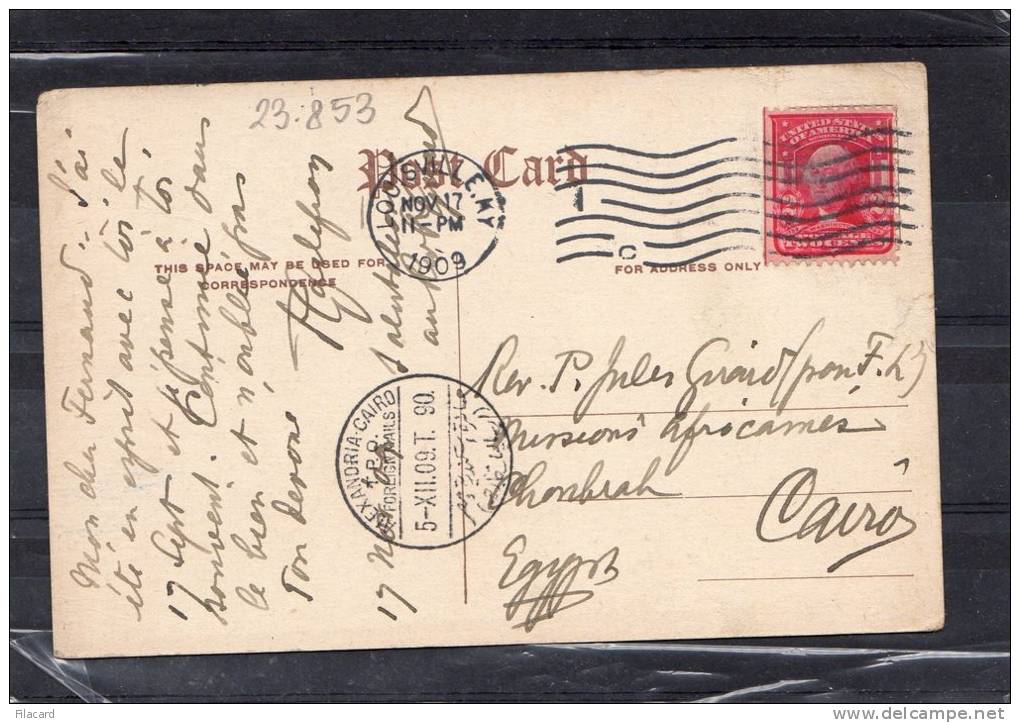 23.853
Post Card
THIS SPACE MAY BE USED FOR
CORRESPONDENCE
FOR ADDRESS ONLY
LOUISVILLE, KY
NOV 17
11-PM
1909
UNITED STATES
OF AMERICA
2 2
TWO
Mon cher Fernand: J'ai
été en esprit avec toi le
17 Sept et pensé à toi
souvent. Continue dans
le bien et n'oublie pas
Ton
17 Nov 09
Salut
au
Rev. P. Jules Girard (pour F. L)
Missions Africaines
Choubrah
Cairo
Egypt
ALEXANDRIA-CAIRO
T.P.O.
FOREIGN MAILS
5-XII.09.T. 90.
Filacard
www.delcampe.net